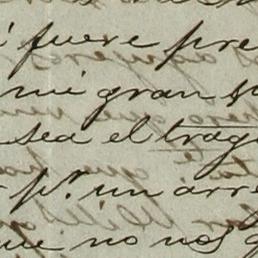 i fuere pre
mi gran s
sea el trag
pr. un arr
que no nos q